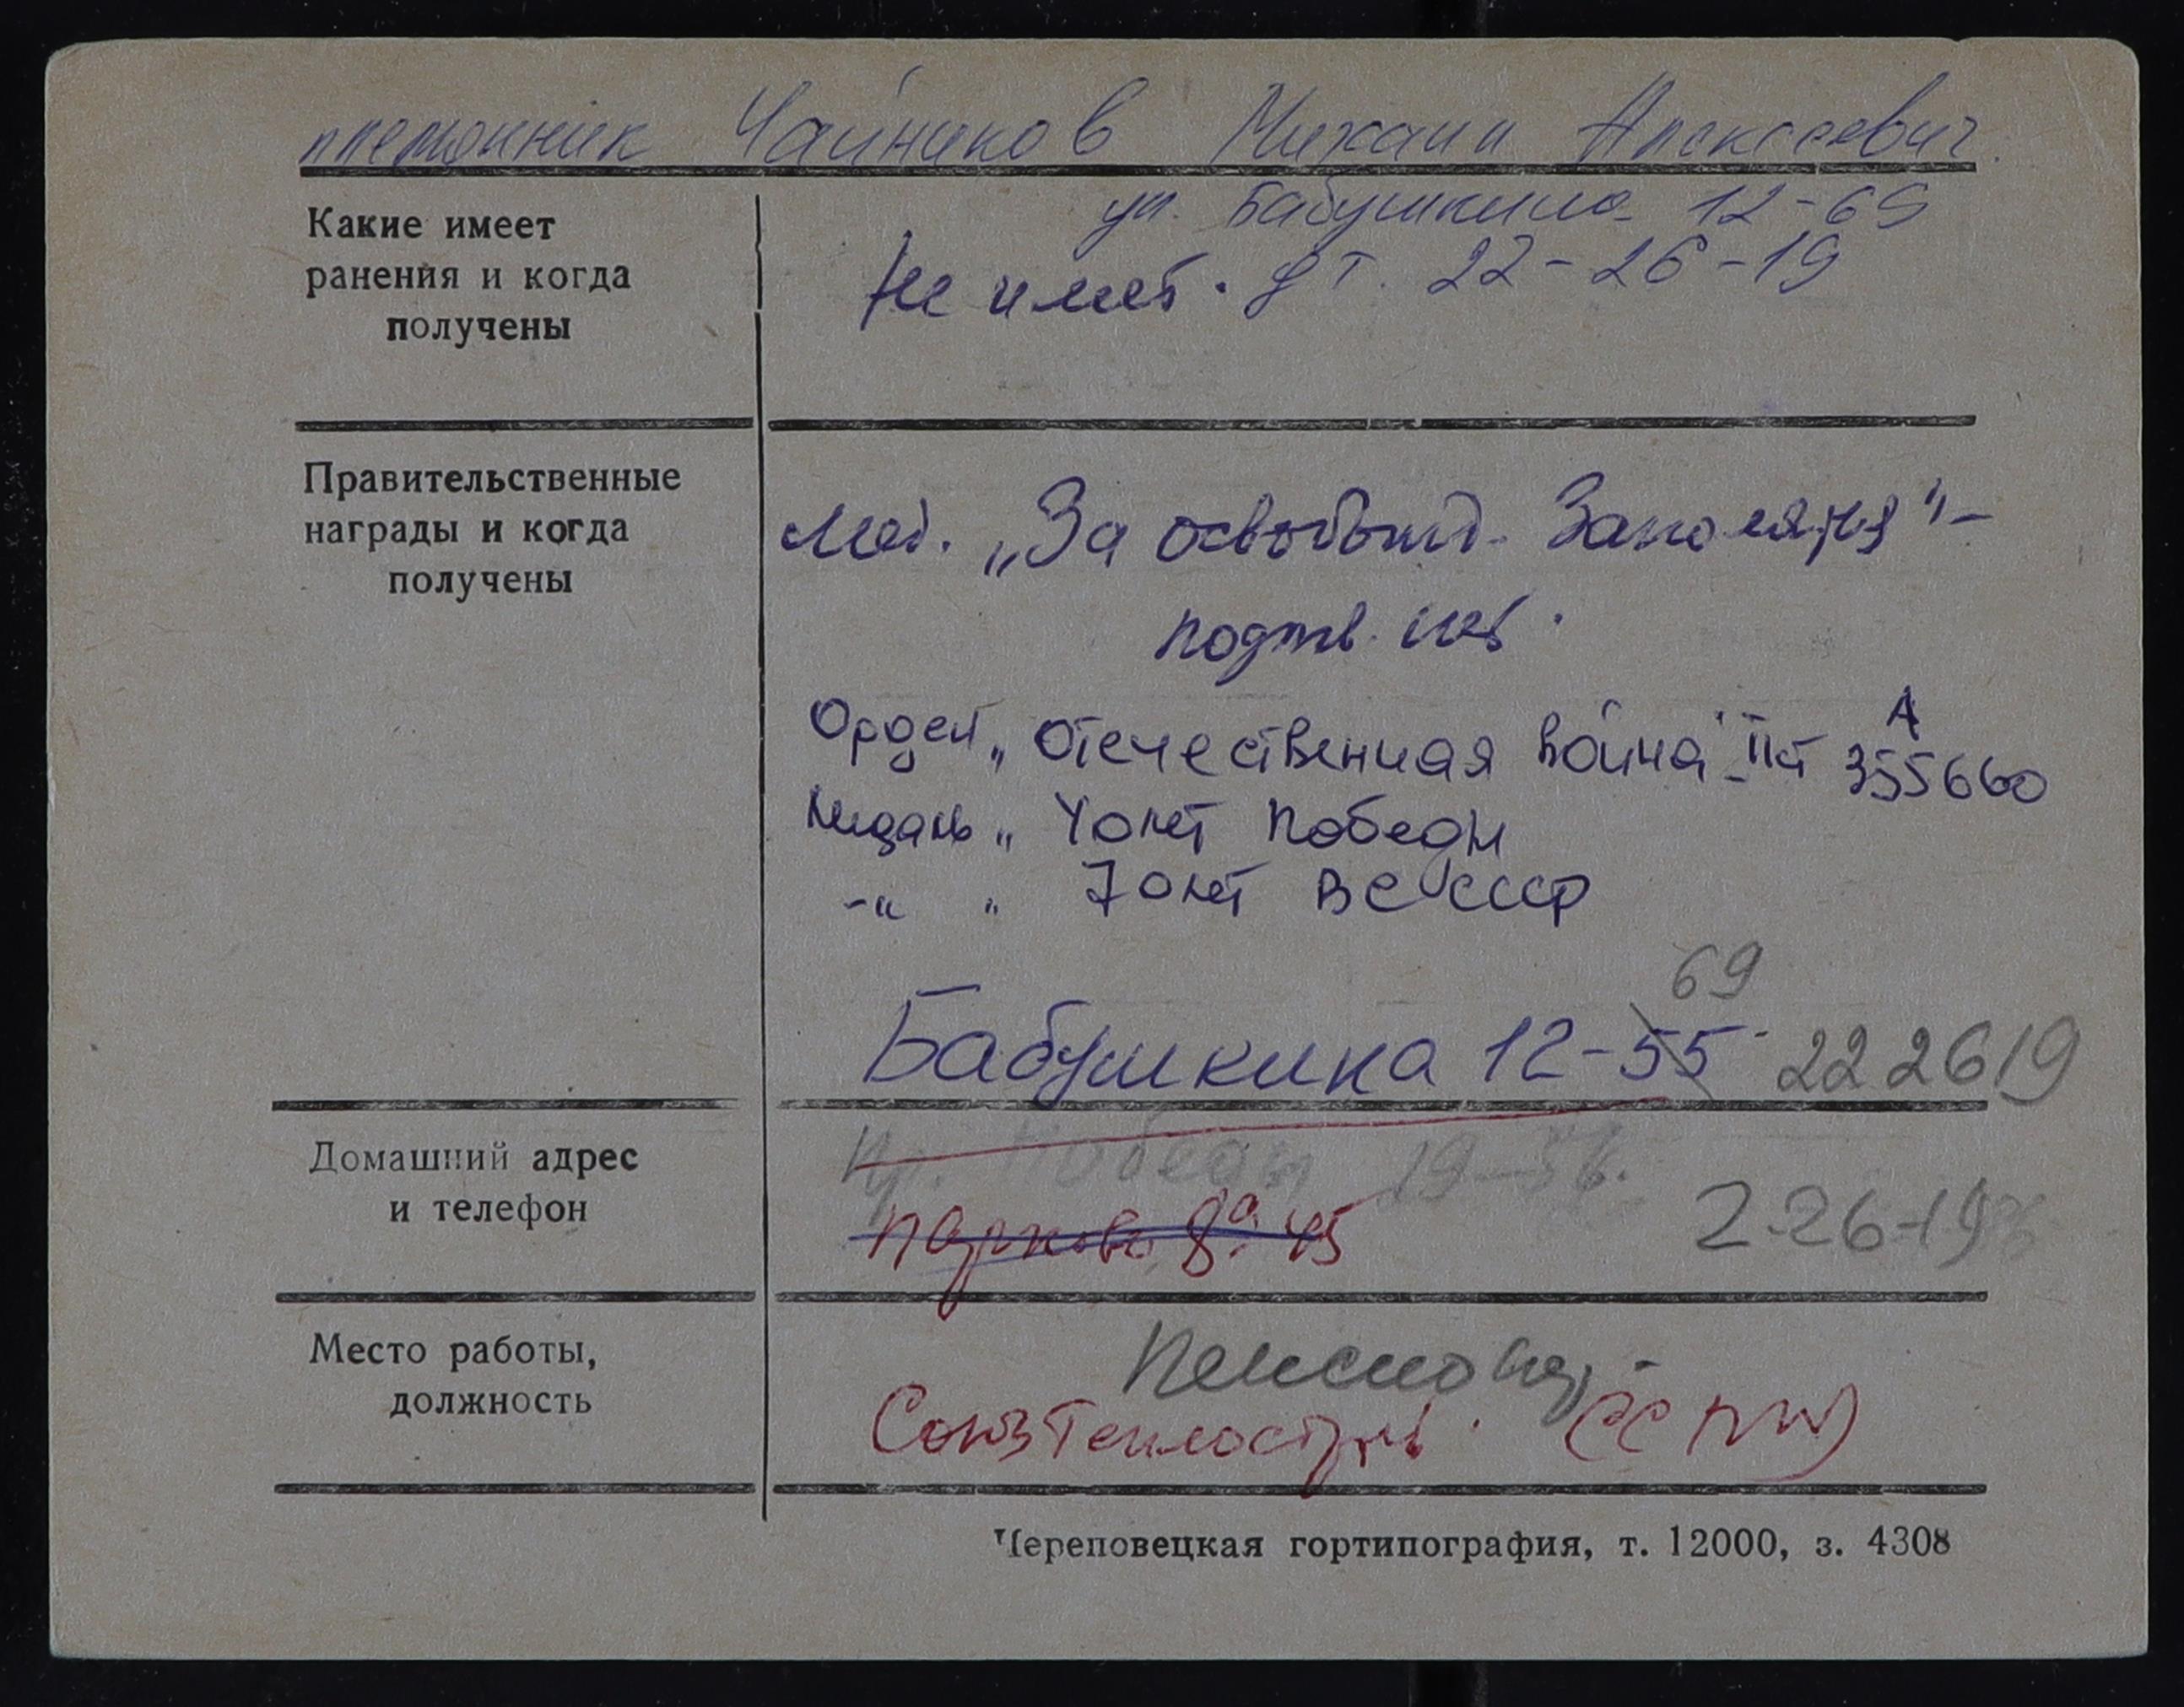 племянник Чайников Михаил Алексеевич
ул. Бабушкина 12-69
Какие имеет
ранения и когда
получены
Не имеет. д т. 22-26-19
Правительственные
награды и когда
получены
Мед. „За освобожд. Заполярья" -
подтв. нет.
Орден „Отечественная война" II ст А 355660
Медаль „ 40 лет Победы
-„ „ 70 лет ВС СССР
69
Бабушкина 12-55 222619
Домашний адрес
и телефон
Пр. Победы 19-
8а 45
2-26-19
Место работы,
должность
Пенсионер
Союзтеплострой
Череповецкая гортипография, т. 12000, з. 4308